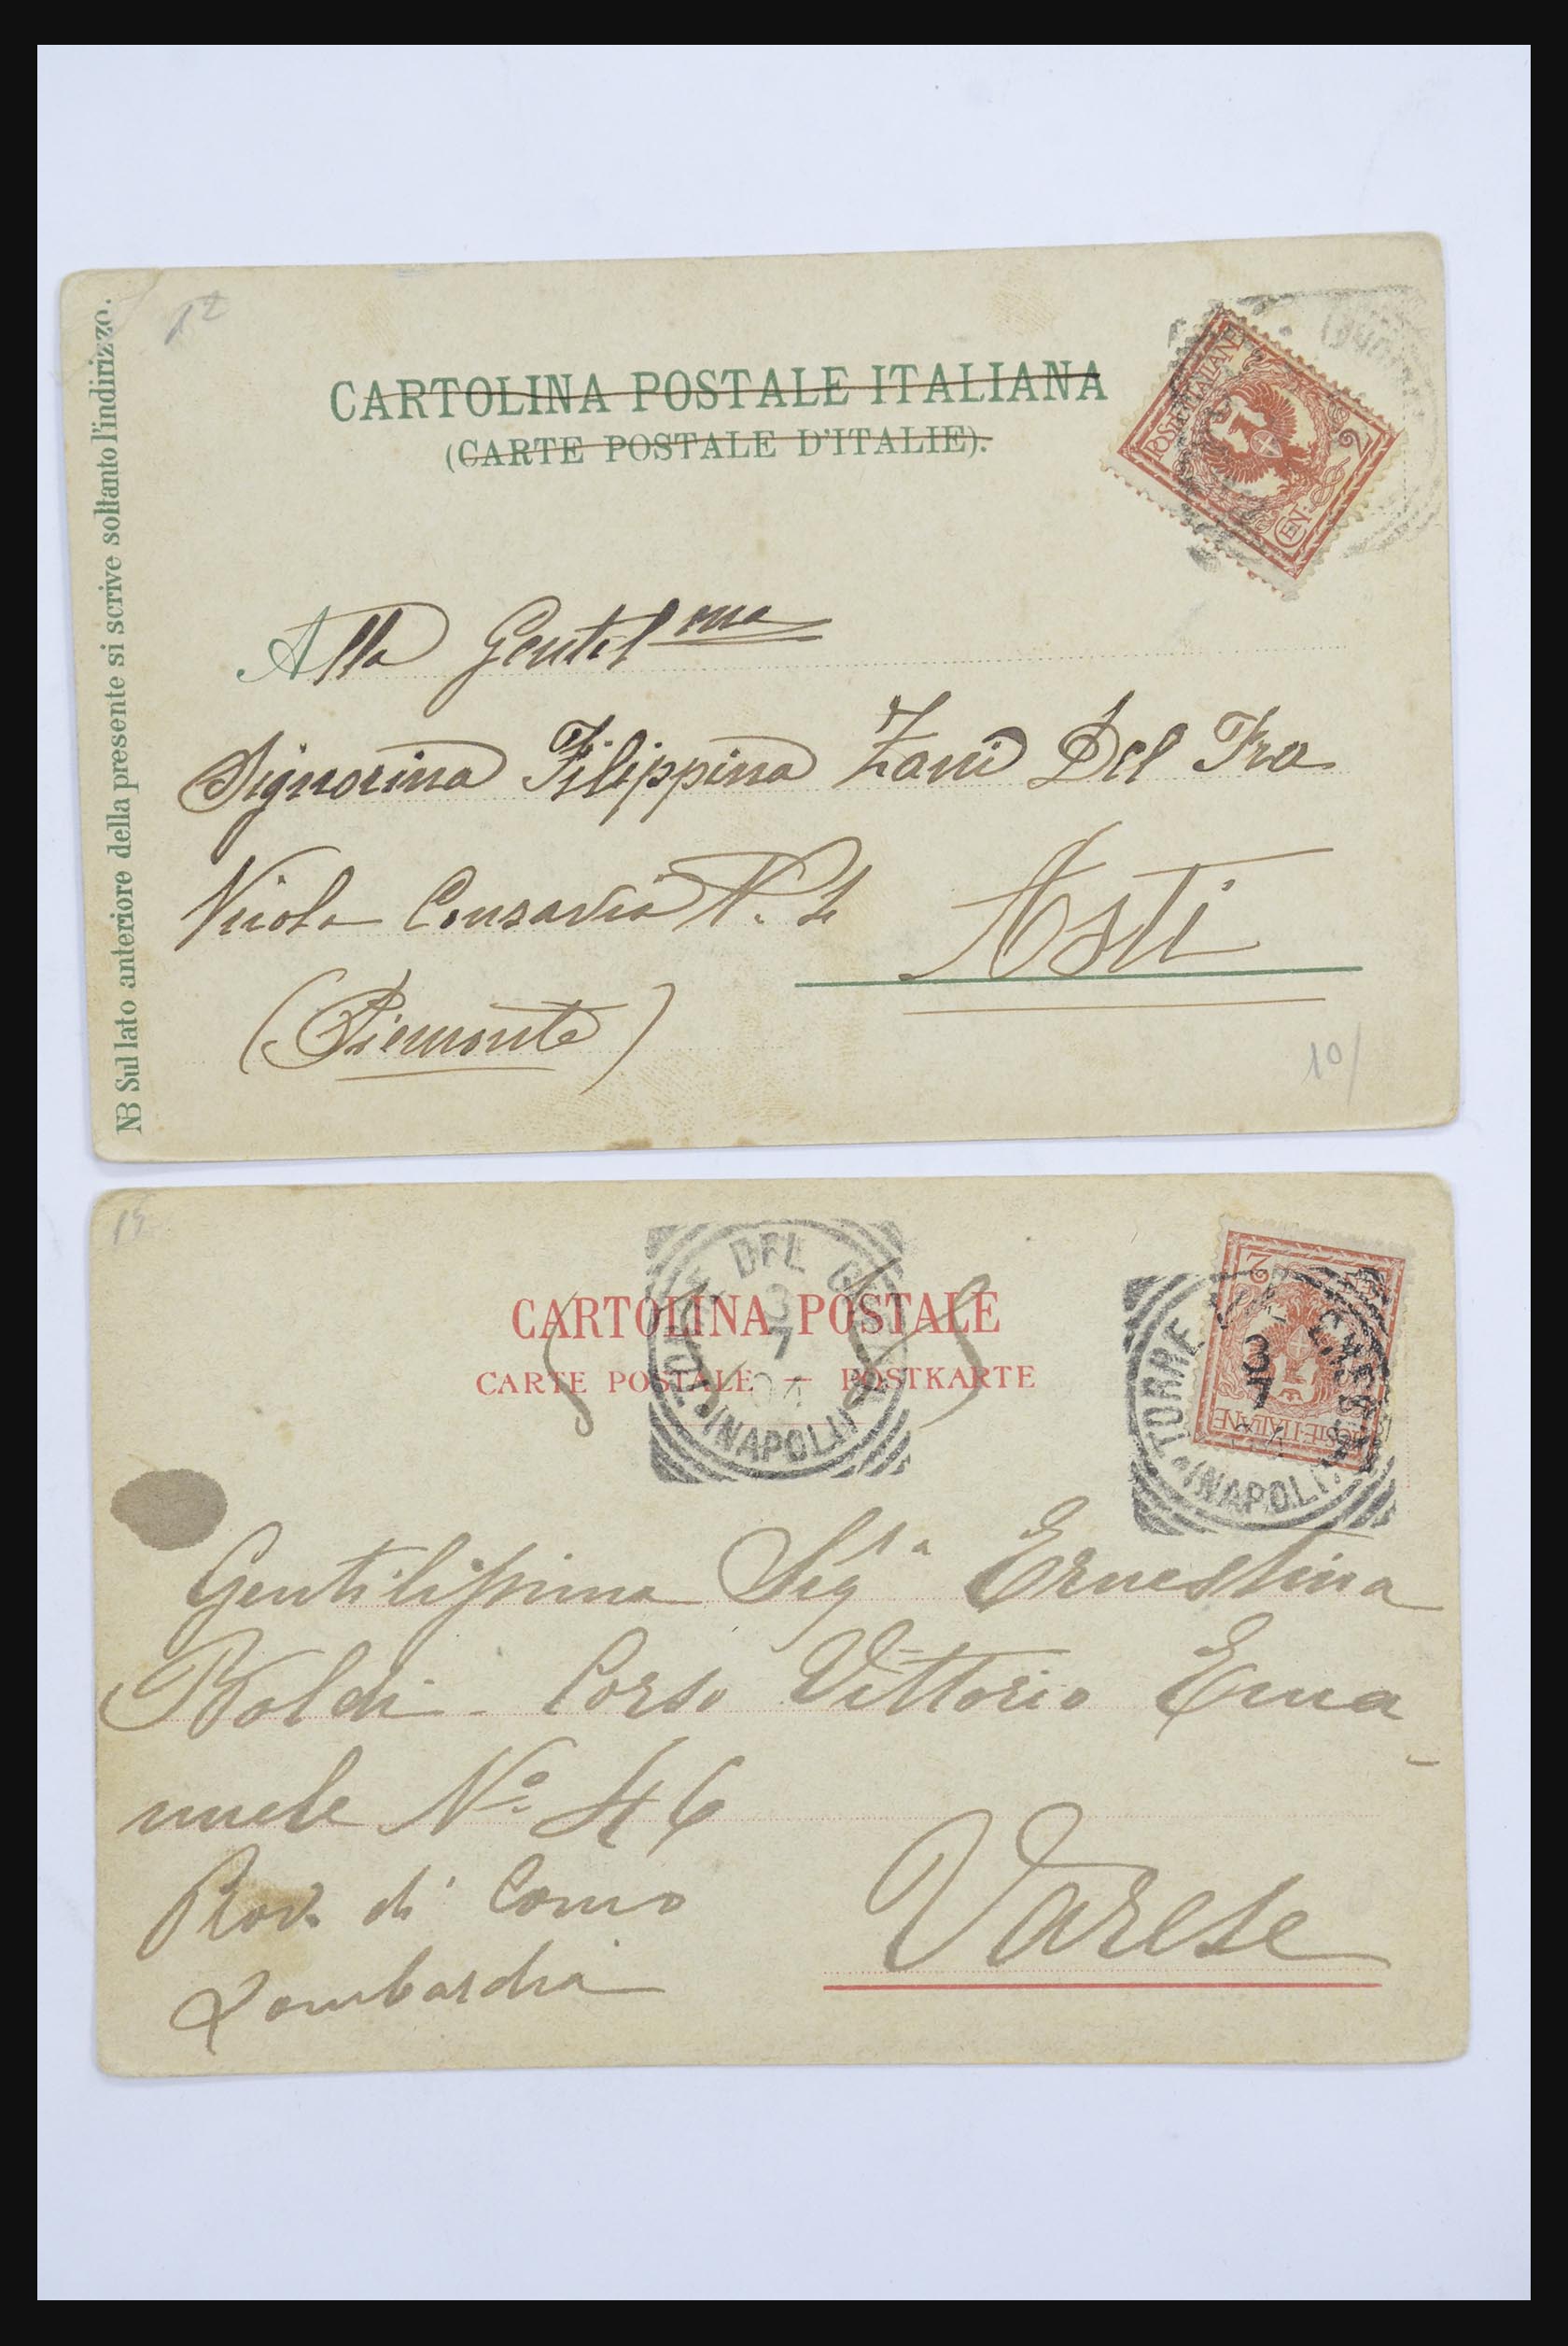 12
CARTOLINA POSTALE ITALIANA
(CARTE POSTALE D'ITALIE).
POSTE ITALIANE
CEN. 2
NB Sul lato anteriore della presente si scrive soltanto l'indirizzo.
Alla Gentil ma
Signorina Filippina Zani Del Fra
Vicolo Consavia N. 2
Asti
(Piemonte)
10/
15
CARTOLINA POSTALE
CARTE POSTALE — POSTKARTE
TORRE DEL GRECO
3
7
04
(NAPOLI)
2
POSTE ITALIANE
TORRE DEL GRECO
3
7
(NAPOLI)
Gentilissima Sigra Ernestina
Boldi - Corso Vittorio Ema-
nuele No. 46
Prov. di Como
Varese
Lombardia